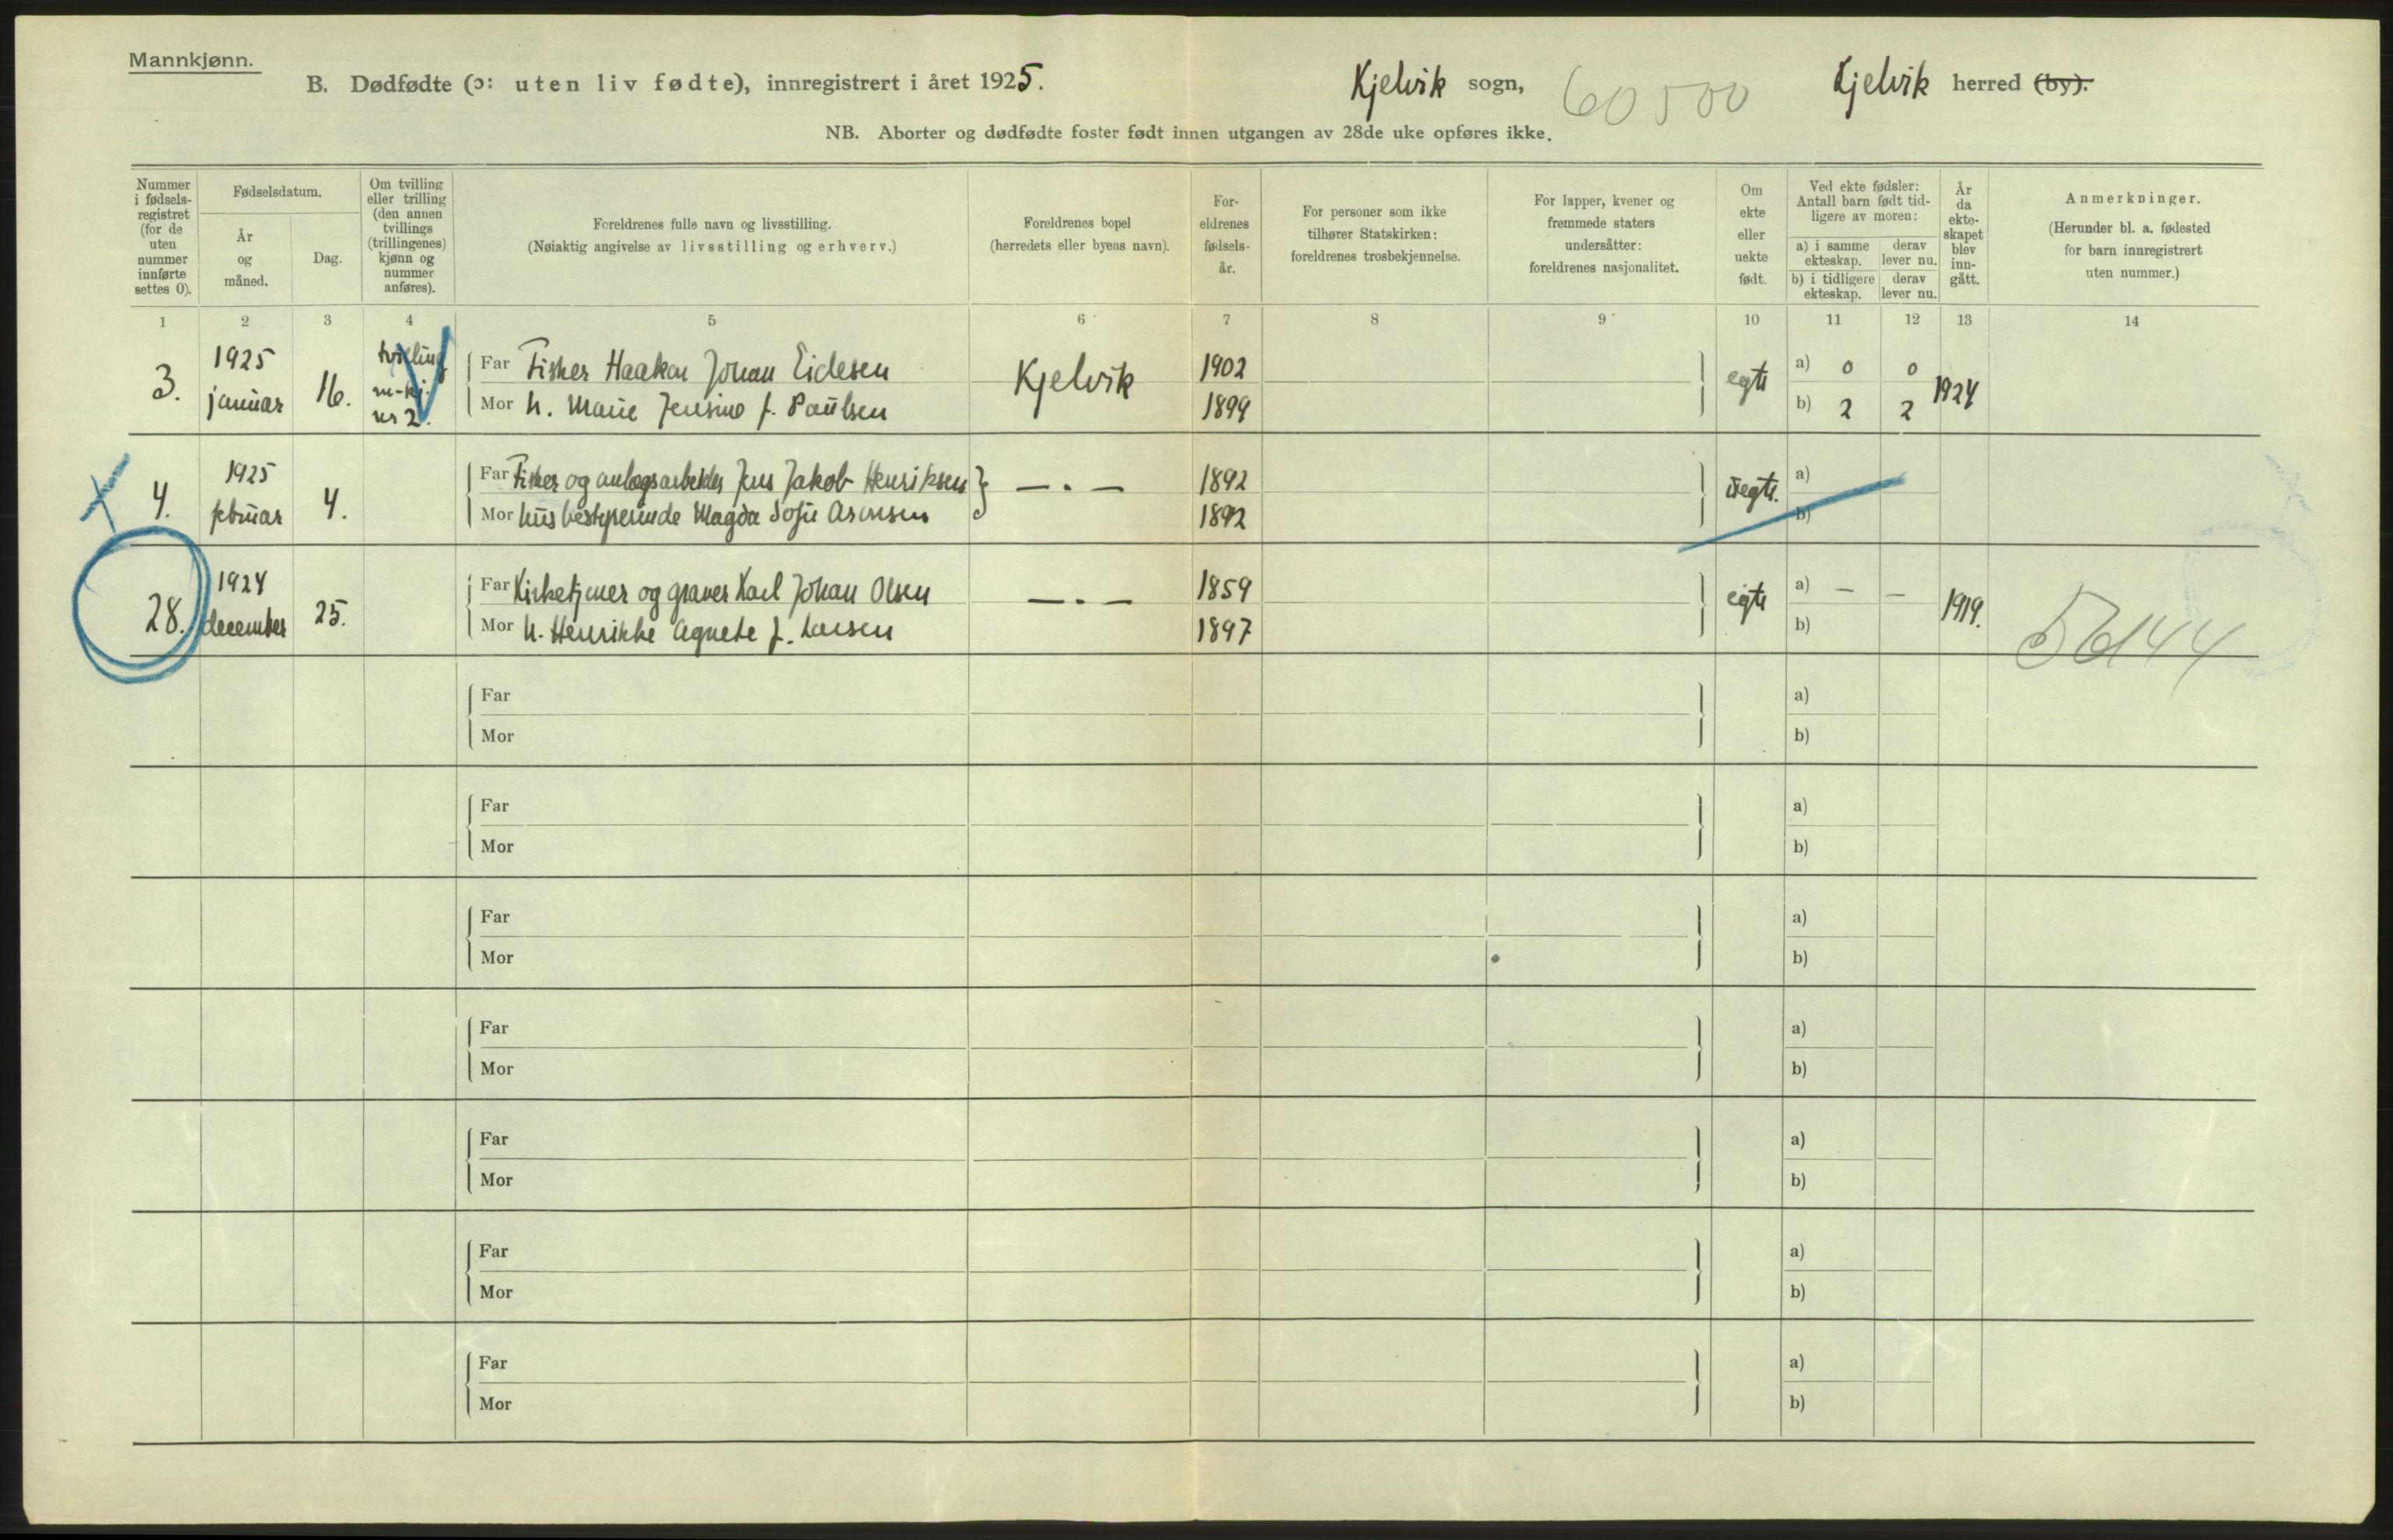 Mannkjønn.
B. Dødfødte (ɔ: uten liv fødte), innregistrert i året 1925.
Kjelvik sogn, 60500 Kjelvik herred (by).
NB. Aborter og dødfødte foster født innen utgangen av 28de uke opføres ikke.
Nummer i fødsels-registret (for de uten nummer innførte settes 0).
Fødselsdatum.
År og måned.
Dag.
Om tvilling eller trilling (den annen tvillings (trillingenes) kjønn og nummer anføres).
Foreldrenes fulle navn og livsstilling.
(Nøiaktig angivelse av livsstilling og erhverv.)
Foreldrenes bopel
(herredets eller byens navn).
For-eldrenes fødsels-år.
For personer som ikke tilhører Statskirken: foreldrenes trosbekjennelse.
For lapper, kvener og fremmede staters undersåtter: foreldrenes nasjonalitet.
Om ekte eller uekte født.
Ved ekte fødsler: Antall barn født tid-ligere av moren:
a) i samme ekteskap. derav lever nu.
b) i tidligere ekteskap. derav lever nu.
År da ekte-skapet blev inn-gått.
Anmerkninger.
(Herunder bl. a. fødested for barn innregistrert uten nummer.)
1 2 3 4 5 6 7 8 9 10 11 12 13 14
3. 1925 januar 16. tvilling m-kj. nr 2.
Far Fisker Haakon Johan Eidesen Kjelvik 1902 egte a) 0 0 1924
Mor h. Marie Jensine f. Paulsen 1899 b) 2 2
4. 1925 februar 4.
Far Fisker og anlægsarbeider Jens Jakob Henriksen — . — 1892 uegte. a)
Mor husbestyrerinde Magda Sofie 1892 b)
28. 1924 december 25.
Far Kirketjener og graver Karl Johan Olsen — . — 1859 egte a) — — 1919.
Mor h. Henrikke Agnete f. Larsen 1897 b)
56144
Far a)
Mor b)
Far a)
Mor b)
Far a)
Mor b)
Far a)
Mor b)
Far a)
Mor b)
Far a)
Mor b)
Far a)
Mor b)